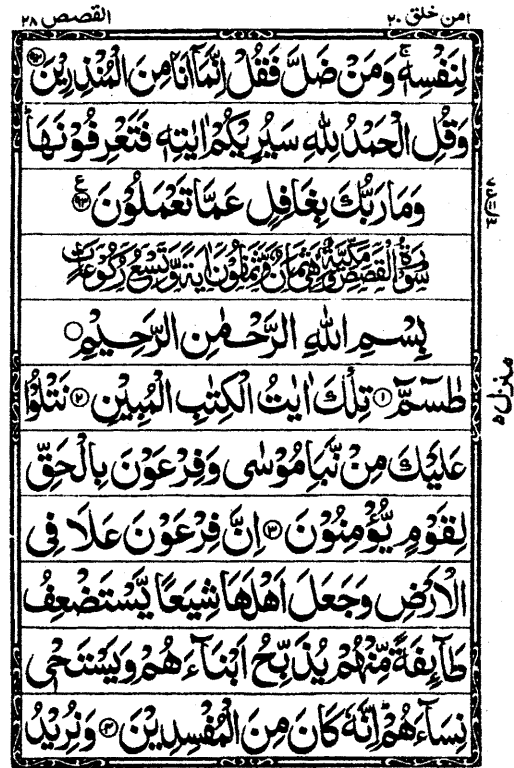 امن خلق ٢٠
القصص ٢٨
لِنَفْسِهٖ ۚ وَمَنْ ضَلَّ فَقُلْ اِنَّمَاۤ اَنَا مِنَ الْمُنْذِرِيْنَ ﴿٩٢﴾
وَقُلِ الْحَمْدُ لِلّٰهِ سَيُرِيْكُمْ اٰيٰتِهٖ فَتَعْرِفُوْنَهَا ؕ
وَمَا رَبُّكَ بِغَافِلٍ عَمَّا تَعْمَلُوْنَ ﴿٩٣﴾ ع
سُوْرَةُ الْقَصَصِ مَكِّيَّةٌ وَّهِيَ ثَمَانٌ وَّثَمَانُوْنَ اٰيَةً وَّتِسْعُ رُكُوْعَاتٍ
بِسْمِ اللّٰهِ الرَّحْمٰنِ الرَّحِيْمِ ○
طٰسٓمّٓ ﴿١﴾ تِلْكَ اٰيٰتُ الْكِتٰبِ الْمُبِيْنِ ﴿٢﴾ نَتْلُوْا
عَلَيْكَ مِنْ نَّبَاِ مُوْسٰى وَفِرْعَوْنَ بِالْحَقِّ
لِقَوْمٍ يُّؤْمِنُوْنَ ﴿٣﴾ اِنَّ فِرْعَوْنَ عَلَا فِى
الْاَرْضِ وَجَعَلَ اَهْلَهَا شِيَعًا يَّسْتَضْعِفُ
طَآئِفَةً مِّنْهُمْ يُذَبِّحُ اَبْنَآءَهُمْ وَيَسْتَحْىٖ
نِسَآءَهُمْ ؕ اِنَّهٗ كَانَ مِنَ الْمُفْسِدِيْنَ ﴿٤﴾ وَنُرِيْدُ
منزل ٥